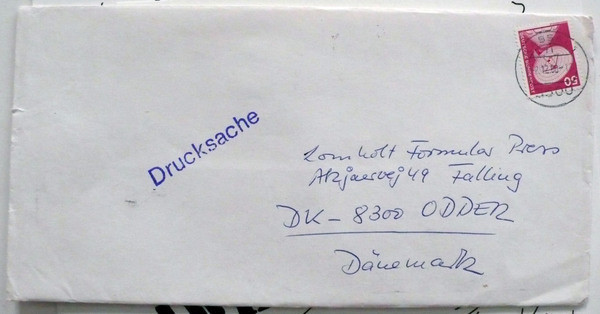 Drucksache
Lomholt Formular Press
Akjaervej 49 Falling
DK - 8300 ODDER
Dänemark
50